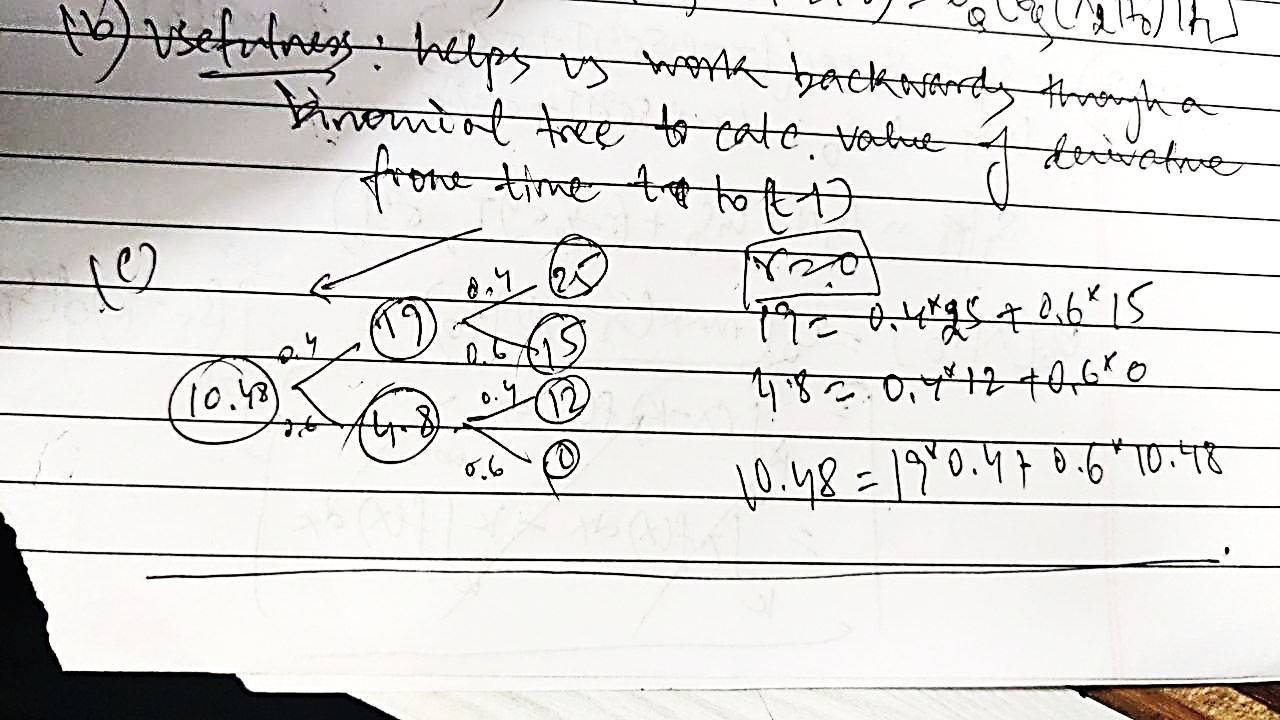 (b) Usefulness: helps us work backwards through a
binomial tree to calc. value of derivative
from time t to (t-1)
(c)
0.4 25
19
0.6 15
0.4
10.48
0.6
0.4 12
4.8
0.6 0
r=0
19 = 0.4×25 + 0.6×15
4.8 = 0.4×12 + 0.6×0
10.48 = 19×0.4 + 0.6×10.48